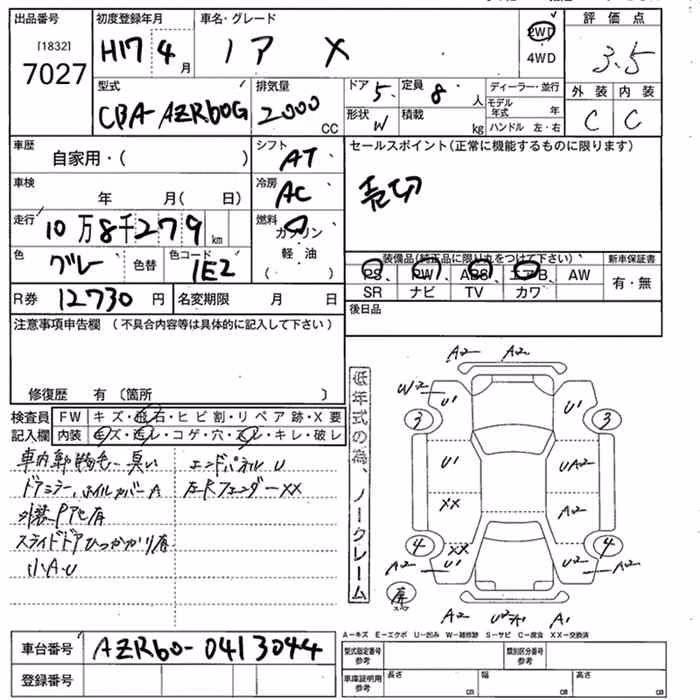 出品番号 初度登録年月 車名・グレード 評価点
[1832] H17年 4月 ノア X 2WD 3.5
7027 4WD
型式 排気量 ドア 5、 定員 8人 ディーラー・並行 外装 内装
CBA-AZR60G 2000 CC 形状 W 積載 kg モデル年式 年 C C
ハンドル 左・右
車歴 自家用・( ) シフト AT セールスポイント(正常に機能するものに限ります)
車検 年 月( 日) 冷房 AC 売切
走行 10万8千279km 燃料 ガソリン
色 グレー 色替 色コード 1E2 軽油 ( )
装備品(純正品に限り丸をつけて下さい) 新車保証書
PS、 PW、 ABS、 エアB、 AW 有・無
SR ナビ TV カワ
R券 12730円 名変期限 月 日 後日品
注意事項申告欄 (不具合内容等は具体的に記入して下さい)
修復歴 有 〔箇所 〕
検査員 FW キズ・飛石・ヒビ割・リペア跡・X要
記入欄 内装 キズ・汚レ・コゲ・穴・スレ・キレ・破レ
車内 臭い エンドパネル U
ドアミラー、ホイルカバーA 左Rフェンダー XX
外装 P 有
スライドドアひっかかり有
小A・U
低年式の為、ノークレーム
A2 A2
W2 U1 U1
3 3
U1 UA2
XX A2
4 XX 4
A2 U1 U2 A2
A2 A1
A-キズ E-エクボ U-凹み W-補修跡 S-サビ C-腐食 XX-交換済
車台番号 AZR60-0413044
登録番号
型式指定番号 参考 類別区分番号 参考
車庫証明用 参考 長さ cm 幅 cm 高さ cm